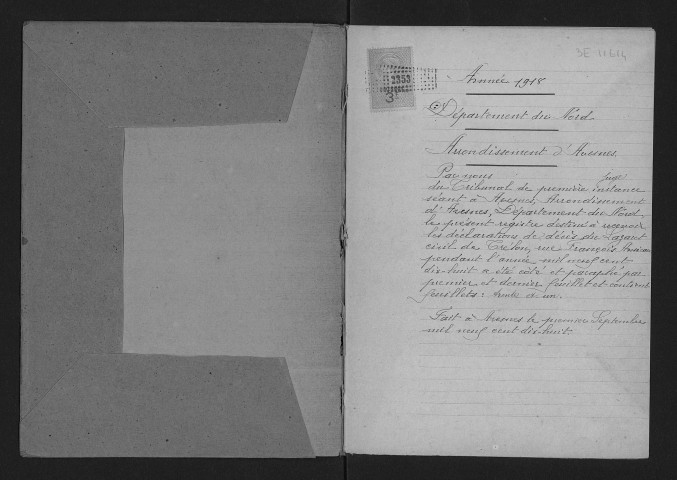 3E-11614
2353
3F
Année 1918
Département du Nord
Arrondissement d'Avesnes
Par nous Juge
du Tribunal de première instance
séant à Avesnes, Arrondissement
d'Avesnes, Département du Nord
le présent registre destiné à recevoir
les déclarations de décès du Lazaret
civil de Trélon, rue François
pendant l'année mil neuf cent
dix-huit a été coté et paraphé par
premier et dernier feuillet et contenant
feuillets :
Fait à Avesnes le premier Septembre
mil neuf cent dix-huit.